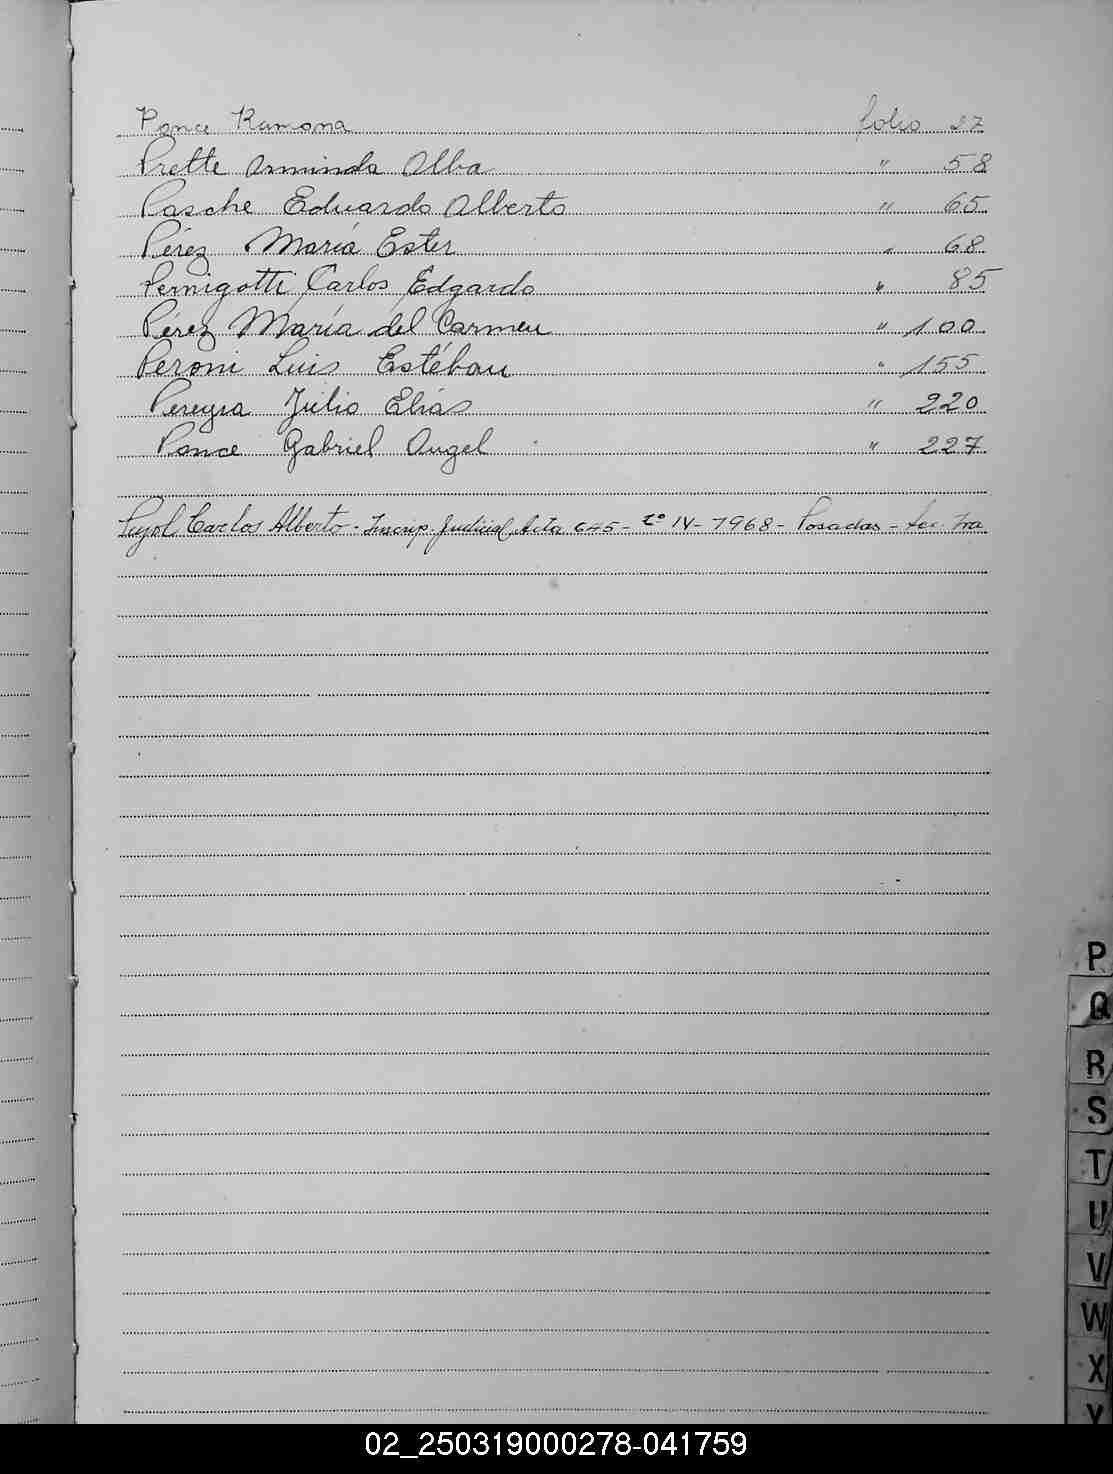 Ponce Ramona folio 27
Prette Arminda Alba " 58
Pasche Eduardo Alberto " 65
Pérez María Ester " 68
Pernigotti Carlos Edgardo " 85
Pérez María del Carmen " 100
Peroni Luis Estéban " 155
Pereyra Julio Elías " 220
Ponce Gabriel Angel " 227
Pujol Carlos Alberto - Inscrip. Judicial Acta 645 - Tº IV - 1968 - Posadas - Sec. 1ra
P
Q
R
S
T
U
V
W
X
Y
02_250319000278-041759